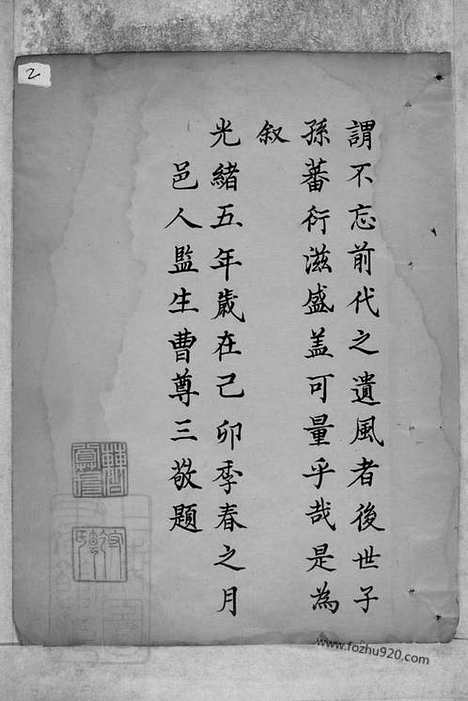 謂不忘前代之遺風者後世子
孫蕃衍滋盛盖可量乎哉是為
叙
光緒五年歲在己卯季春之月
邑人監生曹尊三敬題
2
www.fozhu920.com